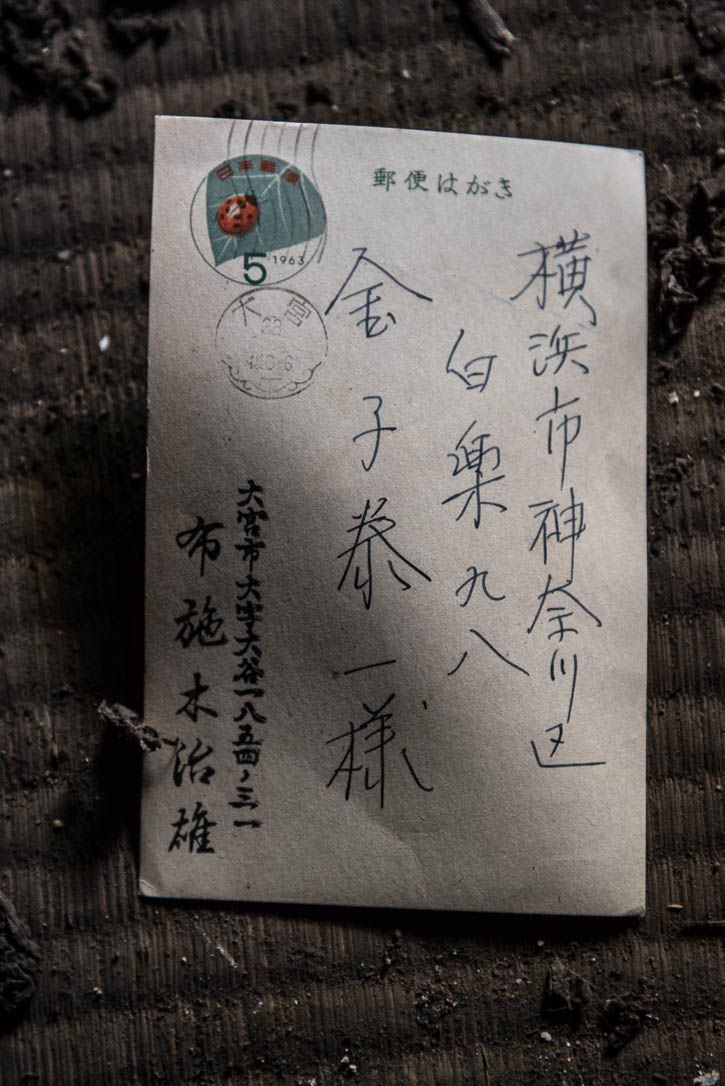 郵便はがき
日本郵便
5
1963
大宮
横浜市神奈川区
白楽九八
金子泰一様
大宮市大字大谷一八五四ノ三一
布施木治雄